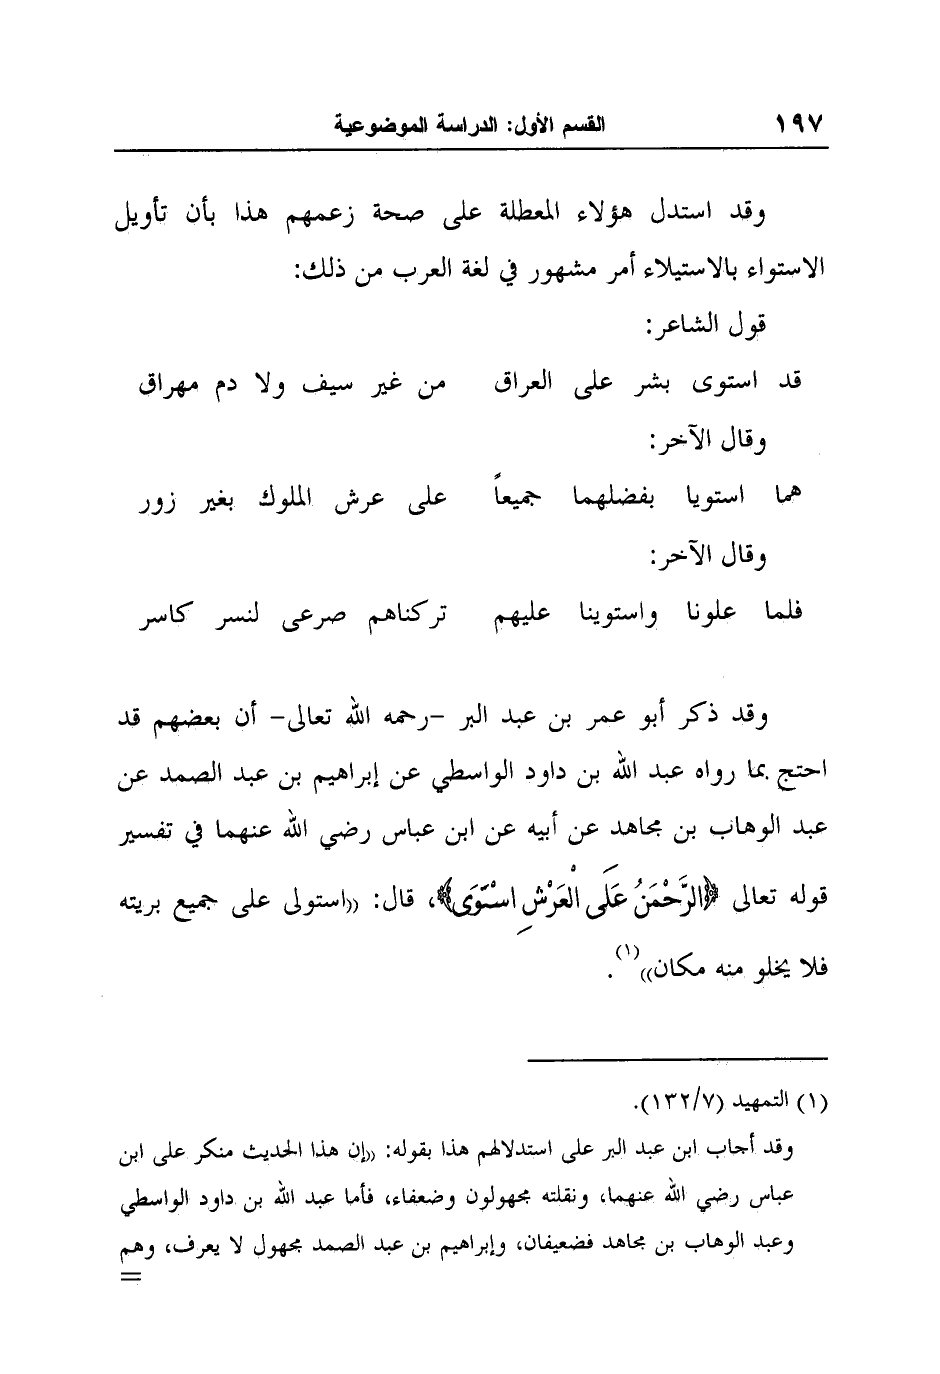 ١٩٧ القسم الأول: الدراسة الموضوعية
وقد استدل هؤلاء المعطلة على صحة زعمهم هذا بأن تأويل
الاستواء بالاستيلاء أمر مشهور في لغة العرب من ذلك:
قول الشاعر:
قد استوى بشر على العراق من غير سيف ولا دم مهراق
وقال الآخر:
هما استويا بفضلهما جميعاً على عرش الملوك بغير زور
وقال الآخر:
فلما علونا واستوينا عليهم تركناهم صرعى لنسر كاسر
وقد ذكر أبو عمر بن عبد البر –رحمه الله تعالى– أن بعضهم قد
احتج بما رواه عبد الله بن داود الواسطي عن إبراهيم بن عبد الصمد عن
عبد الوهاب بن مجاهد عن أبيه عن ابن عباس رضي الله عنهما في تفسير
قوله تعالى ﴿الرَّحْمَنُ عَلَى الْعَرْشِ اسْتَوَى﴾، قال: ((استولى على جميع بريته
فلا يخلو منه مكان))(١).
(١) التمهيد (١٣٢/٧).
وقد أجاب ابن عبد البر على استدلالهم هذا بقوله: ((إن هذا الحديث منكر على ابن
عباس رضي الله عنهما، ونقلته مجهولون وضعفاء، فأما عبد الله بن داود الواسطي
وعبد الوهاب بن مجاهد فضعيفان، وإبراهيم بن عبد الصمد مجهول لا يعرف، وهم
=